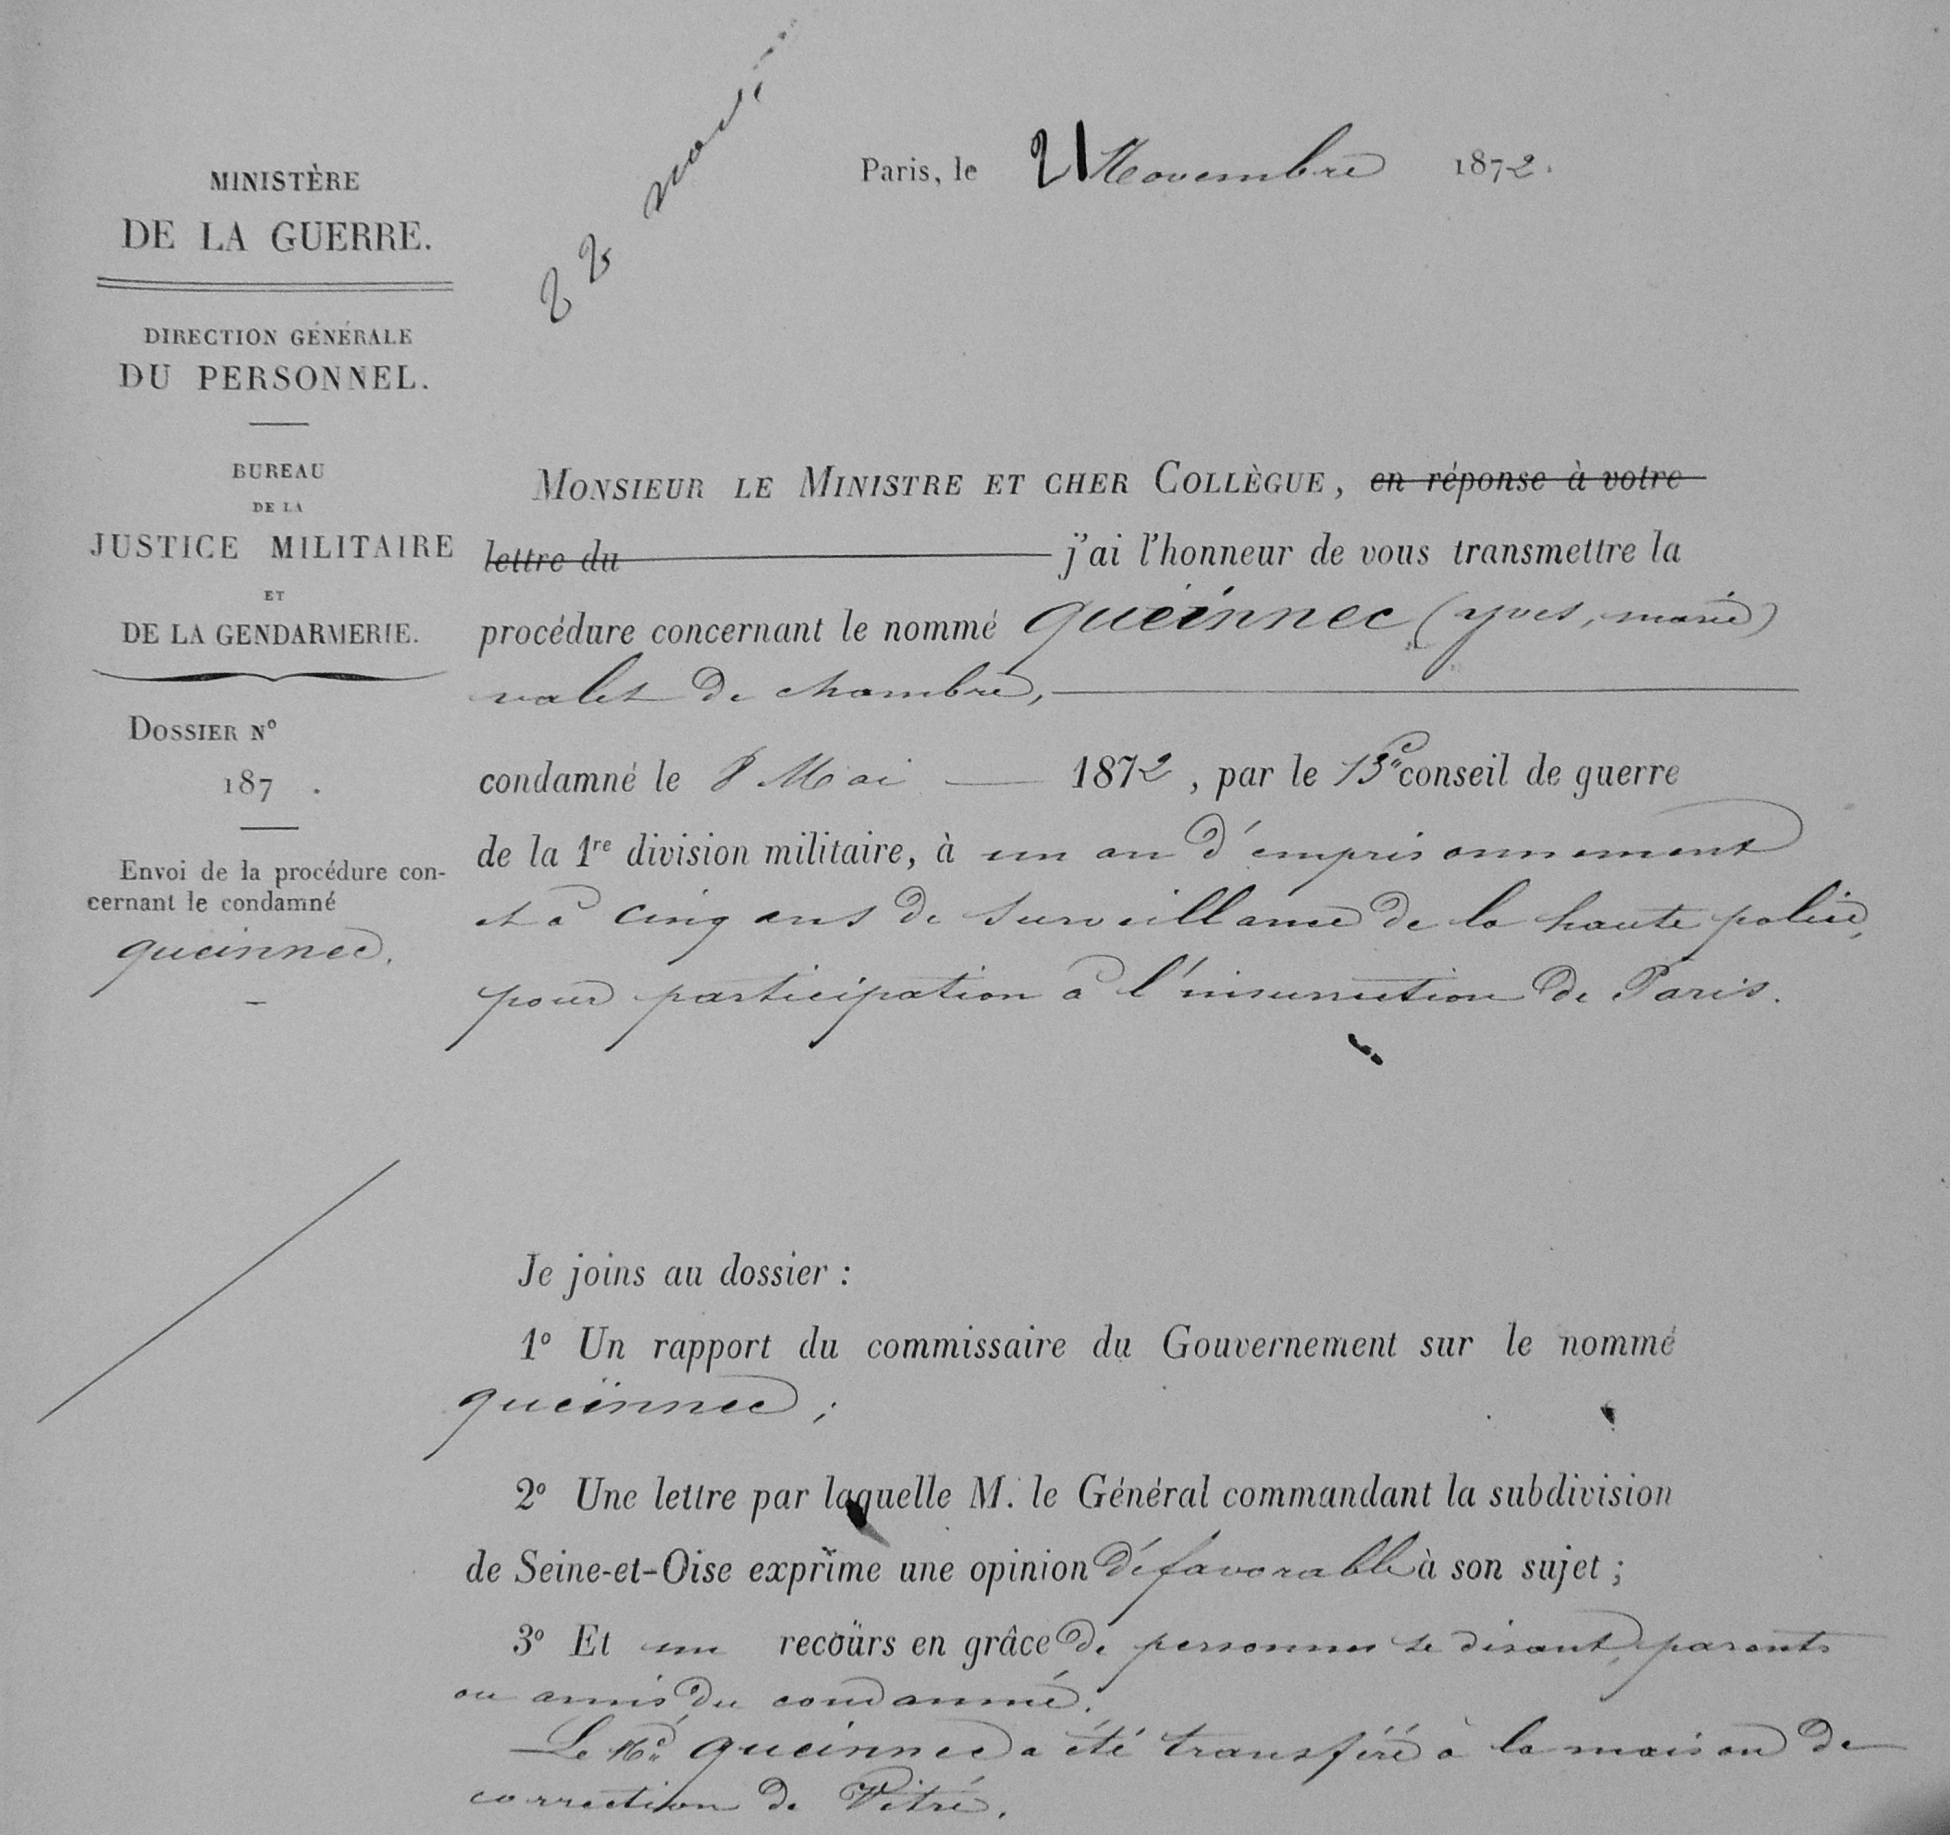 22 nov.
Paris, le 21 Novembre 1872.
MINISTÈRE
DE LA GUERRE.
DIRECTION GÉNÉRALE
DU PERSONNEL.
BUREAU
DE LA
JUSTICE MILITAIRE
ET
DE LA GENDARMERIE.
DOSSIER N°
187 .
Envoi de la procédure con-
cernant le condamné
Queinnec.
MONSIEUR LE MINISTRE ET CHER COLLÈGUE, en réponse à votre
lettre du j'ai l'honneur de vous transmettre la
procédure concernant le nommé Queinnec (Yves, Marie)
valet de chambre,
condamné le 8 Mai 1872, par le 13e conseil de guerre
de la 1re division militaire, à un an d'emprisonnement
et à cinq ans de surveillance de la haute police,
pour participation à l'insurrection de Paris.
Je joins au dossier :
1° Un rapport du commissaire du Gouvernement sur le nommé
Queinnec ;
2° Une lettre par laquelle M. le Général commandant la subdivision
de Seine-et-Oise exprime une opinion défavorable à son sujet ;
3° Et un recours en grâce de personnes se disant parents
ou amis du condamné.
Le Né Queinnec a été transféré à la maison de
correction de Vitré.